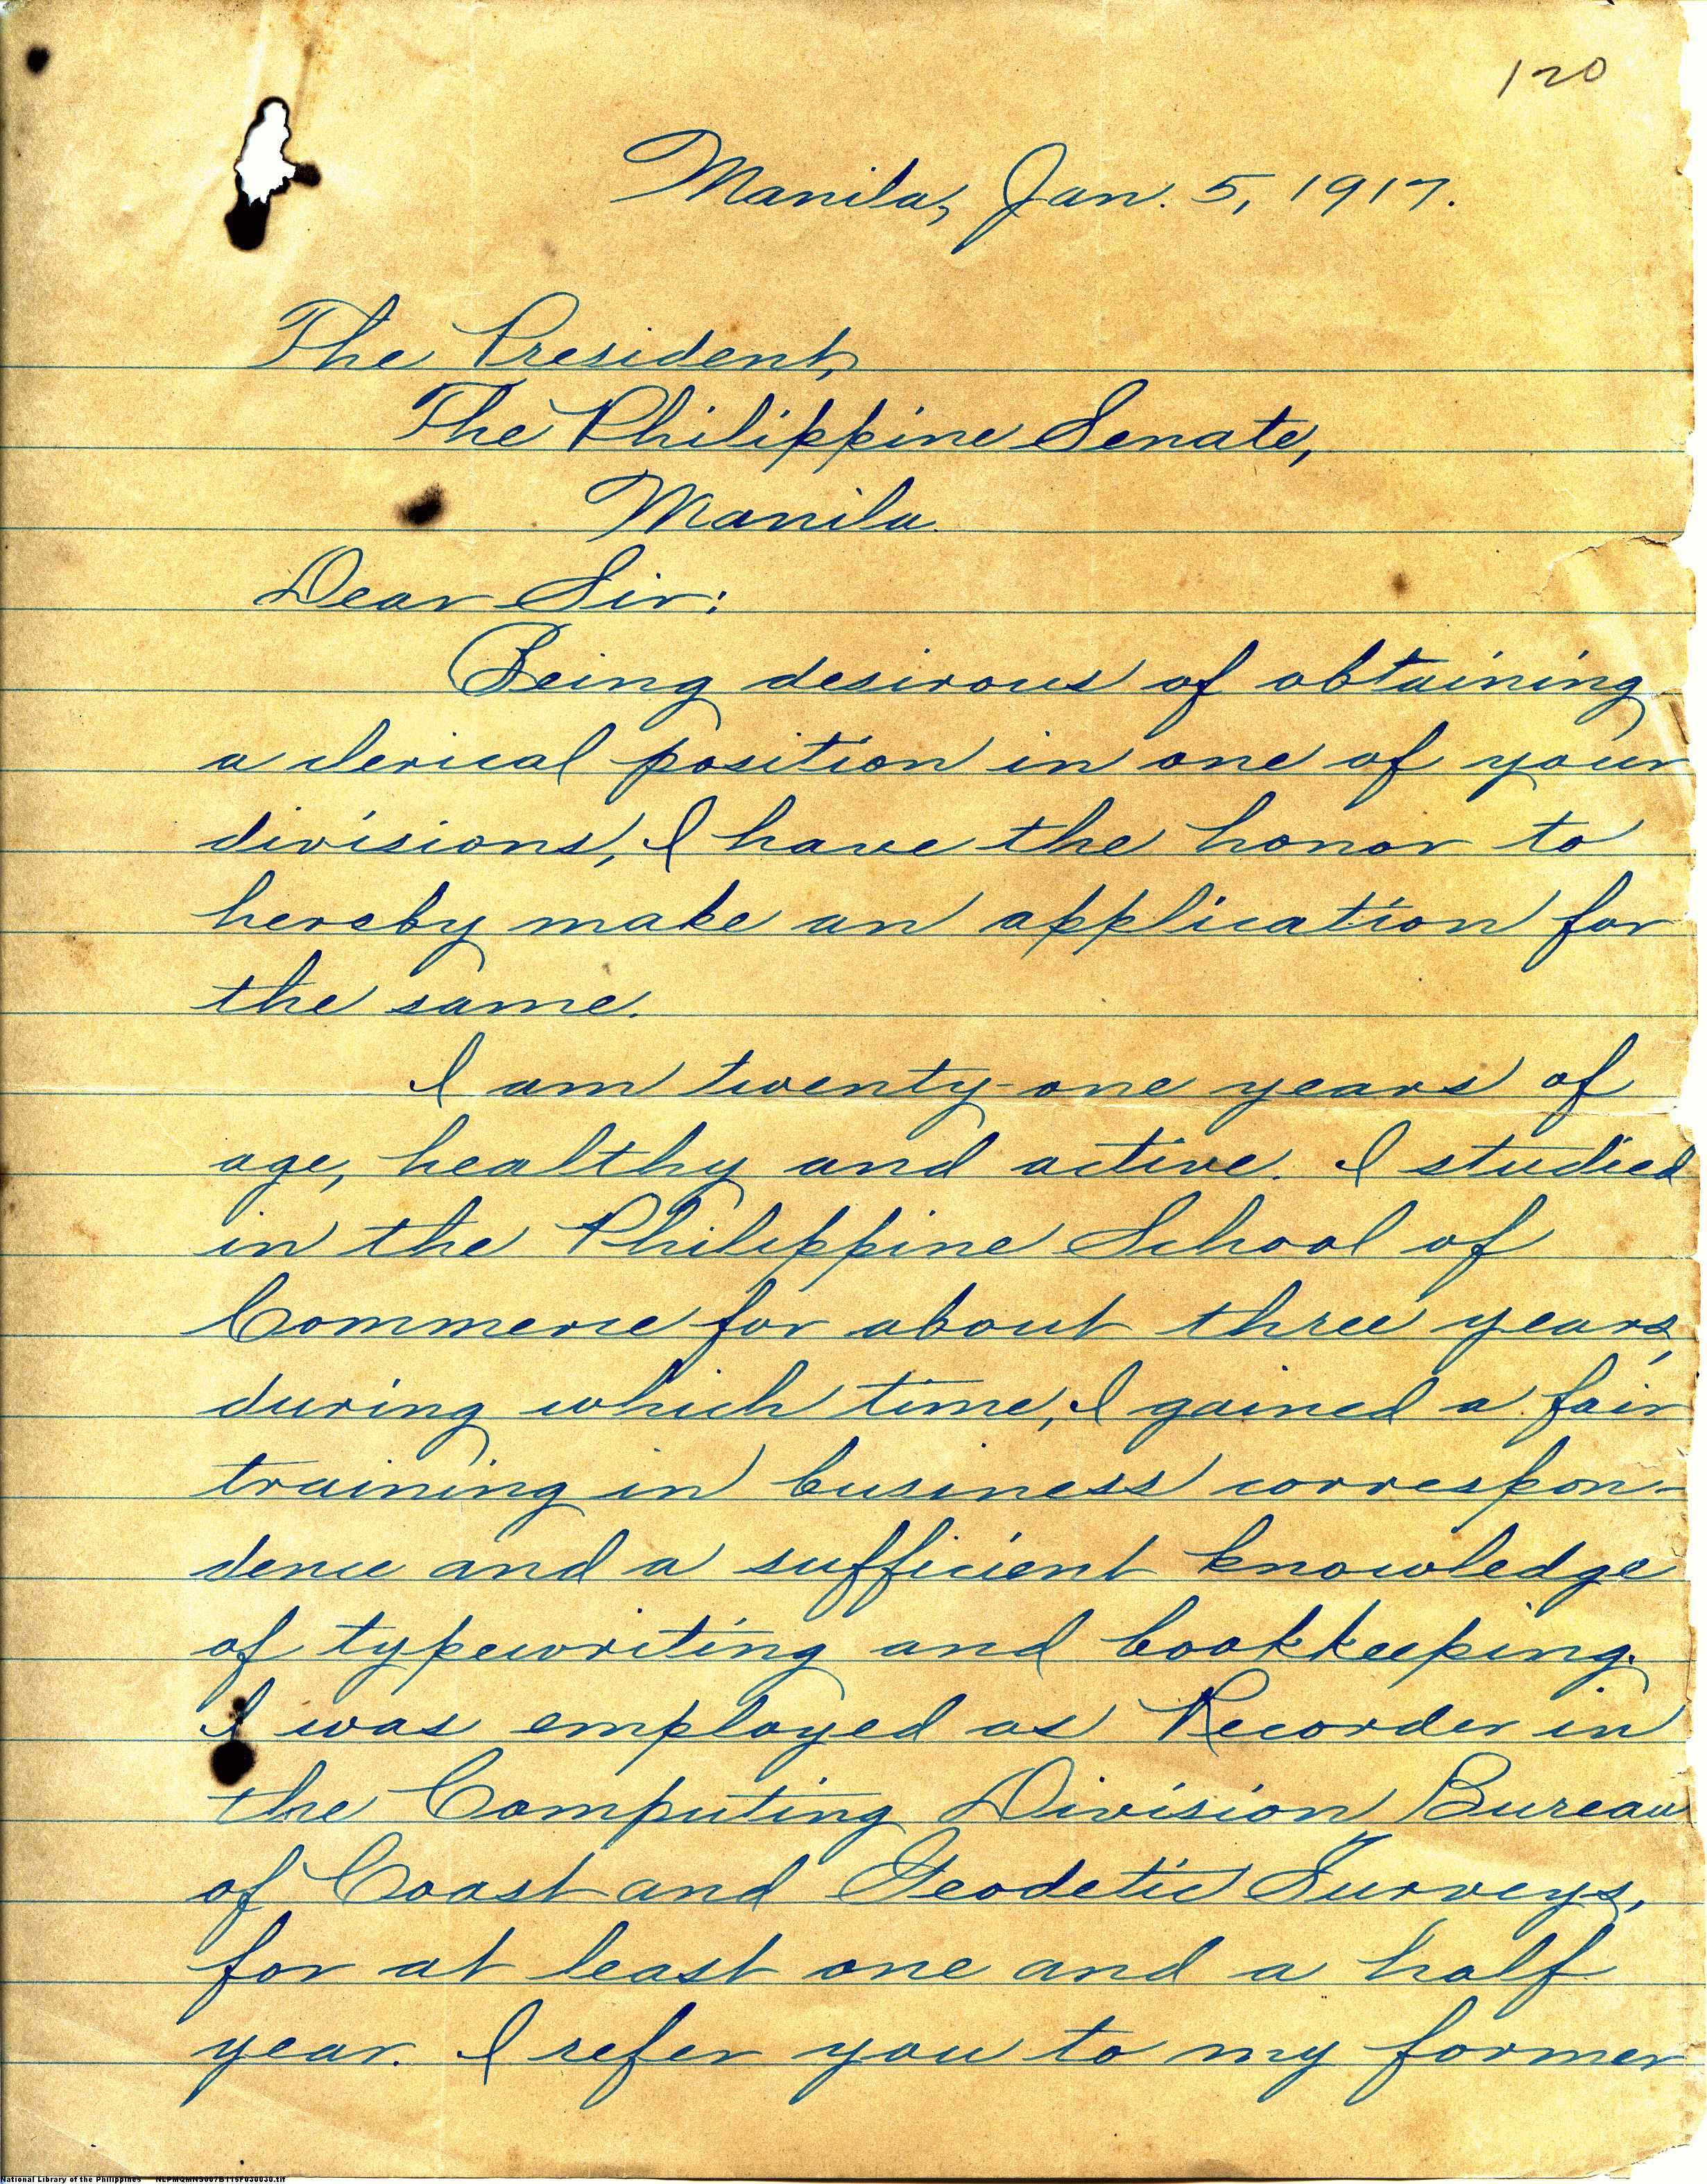 120
Manila, Jan. 5, 1917.
The President,
The Philippine Senate,
Manila.
Dear Sir:
Being desirous of obtaining
a clerical position in one of your
divisions, I have the honor to
hereby make an application for
the same.
I am twenty-one years of
age, healthy and active. I studied
in the Philippine School of
Commerce for about three years,
during which time, I gained a fair
training in business correspon-
dence and a sufficient knowledge
of typewriting and bookkeeping.
I was employed as Recorder in
the Computing Division Bureau
of Coast and Geodetic Surveys,
for at least one and a half
year. I refer you to my former
National Library of the Philippines